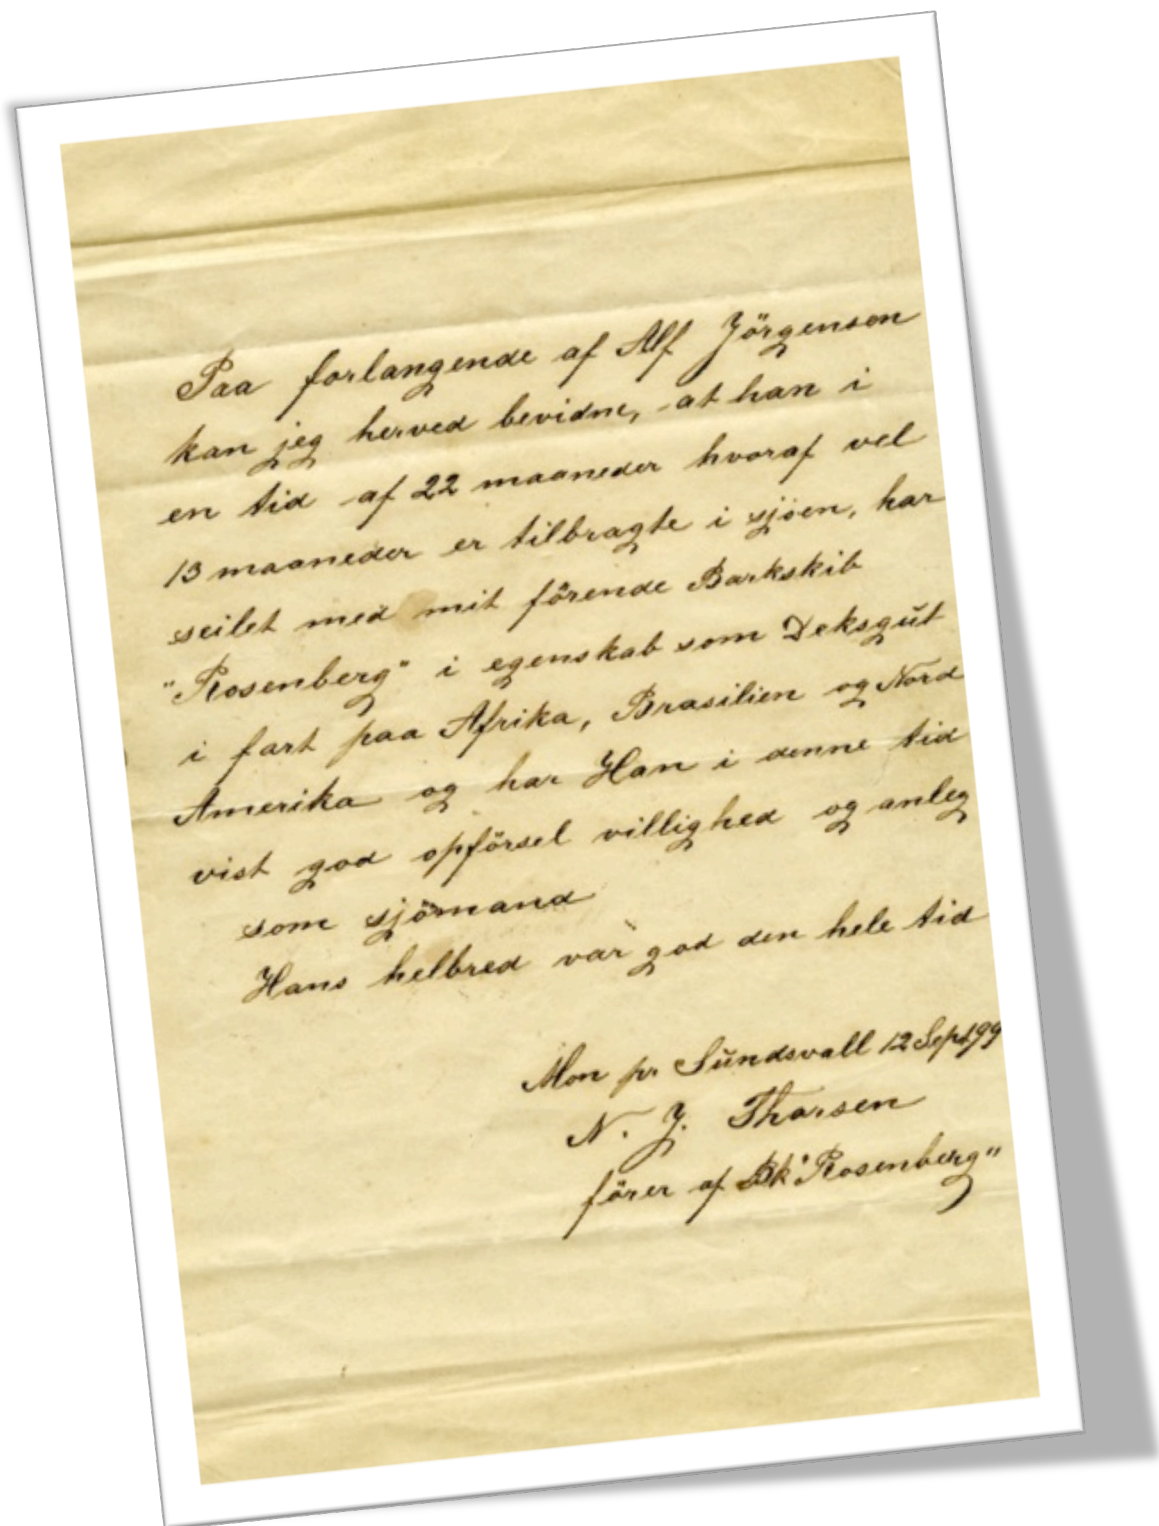 Paa forlangende af Alf Jörgensen
kan jeg herved bevidne, at han i
en tid af 22 maaneder hvoraf vel
13 maaneder er tilbragte i sjöen, har
seilet med mit förende Barkskib
"Rosenberg" i egenskab som Deksgut
i fart paa Afrika, Brasilien og Nord
Amerika og har Han i denne tid
vist god opförsel villighed og anleg
som sjömand
Hans helbred var god den hele tid
Mon pr Sundsvall 12 Sept 99
N. J. Thorsen
förer af Bk "Rosenberg"